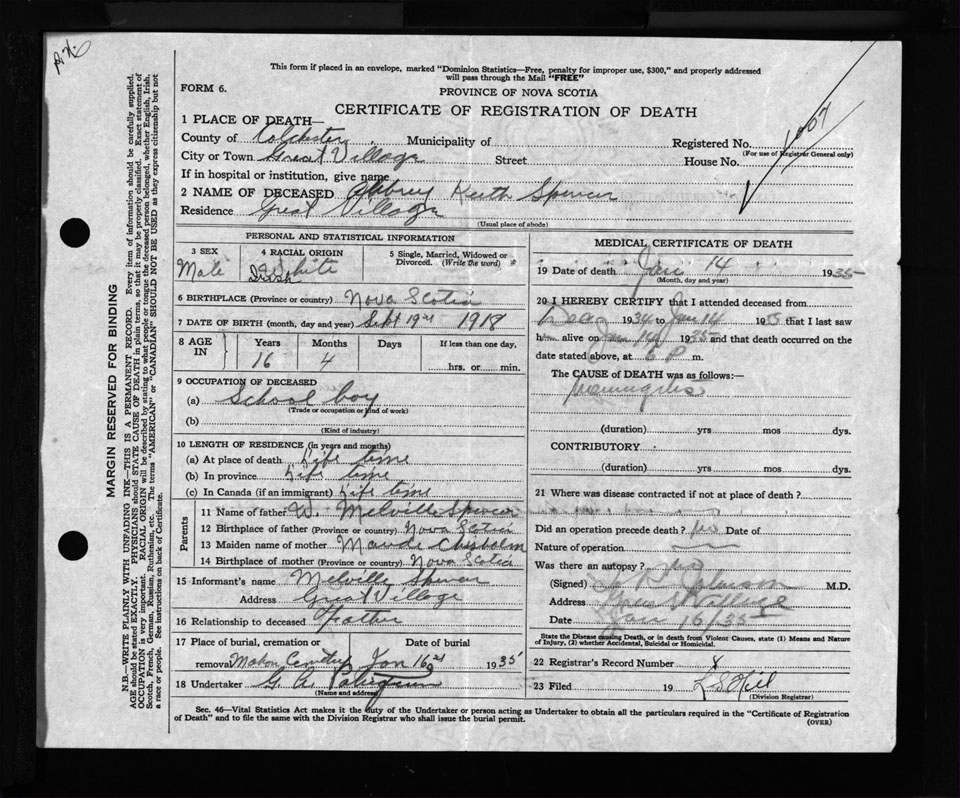 This form if placed in an envelope, marked "Dominion Statistics—Free, penalty for improper use, $300," and properly addressed
will pass through the Mail "FREE"
FORM 6.
PROVINCE OF NOVA SCOTIA
CERTIFICATE OF REGISTRATION OF DEATH
1 PLACE OF DEATH—
County of Colchester Municipality of Registered No. 1007
(For use of Registrar General only)
City or Town Great Village Street House No.
If in hospital or institution, give name
2 NAME OF DECEASED Aubrey Keith Spencer
Residence Great Village
(Usual place of abode)
PERSONAL AND STATISTICAL INFORMATION
3 SEX 4 RACIAL ORIGIN 5 Single, Married, Widowed or
Divorced. (Write the word)
Male White
Irish
6 BIRTHPLACE (Province or country) Nova Scotia
7 DATE OF BIRTH (month, day and year) Sept 19 1918
8 AGE IN Years Months Days If less than one day
16 4 hrs. or min.
9 OCCUPATION OF DECEASED
(a) School boy
(Trade or occupation or kind of work)
(b)
(Kind of industry)
10 LENGTH OF RESIDENCE (in years and months)
(a) At place of death Life time
(b) In province Life time
(c) In Canada (if an immigrant) Life time
Parents
11 Name of father W. Melville Spencer
12 Birthplace of father (Province or country) Nova Scotia
13 Maiden name of mother Maude Chisholm
14 Birthplace of mother (Province or country) Nova Scotia
15 Informant's name Melville Spencer
Address Great Village
16 Relationship to deceased Father
17 Place of burial, cremation or Date of burial
removal Mahon Cemetery Jan 16 1935
18 Undertaker G
(Name and address)
MEDICAL CERTIFICATE OF DEATH
19 Date of death Jan 14 1935
(Month, day and year)
20 I HEREBY CERTIFY that I attended deceased from
Dec 1934 to Jan 14 1935 that I last saw
him alive on Jan 14 1935 and that death occurred on the
date stated above, at 6 P m.
The CAUSE of DEATH was as follows:—
meningitis
(duration) yrs mos dys.
CONTRIBUTORY
(duration) yrs mos dys.
21 Where was disease contracted if not at place of death?
Did an operation precede death? no Date of
Nature of operation
Was there an autopsy? no
(Signed) M.D.
Address Great Village
Date Jan 16/35
State the Disease causing Death, or in death from Violent Causes, state (1) Means and Nature
of Injury, (2) whether Accidental, Suicidal or Homicidal.
22 Registrar's Record Number 8
23 Filed 19 L S Hill
(Division Registrar)
Sec. 46—Vital Statistics Act makes it the duty of the Undertaker or person acting as Undertaker to obtain all the particulars required in the "Certificate of Registration
of Death" and to file the same with the Division Registrar who shall issue the burial permit.
(OVER)
MARGIN RESERVED FOR BINDING
N.B.—WRITE PLAINLY WITH UNFADING INK—THIS IS A PERMANENT RECORD. Every item of information should be carefully supplied.
AGE should be stated EXACTLY. PHYSICIANS should STATE CAUSE OF DEATH in plain terms, so that it may be properly classified. Exact statement of
OCCUPATION is very important. RACIAL ORIGIN will be described by stating to what people or tongue the deceased person belonged, whether English, Irish,
Scotch, French, German, Russian, Ruthenian, etc. The terms "AMERICAN" or "CANADIAN" SHOULD NOT BE USED as they express citizenship but not
a race or people. See instructions on back of Certificate.